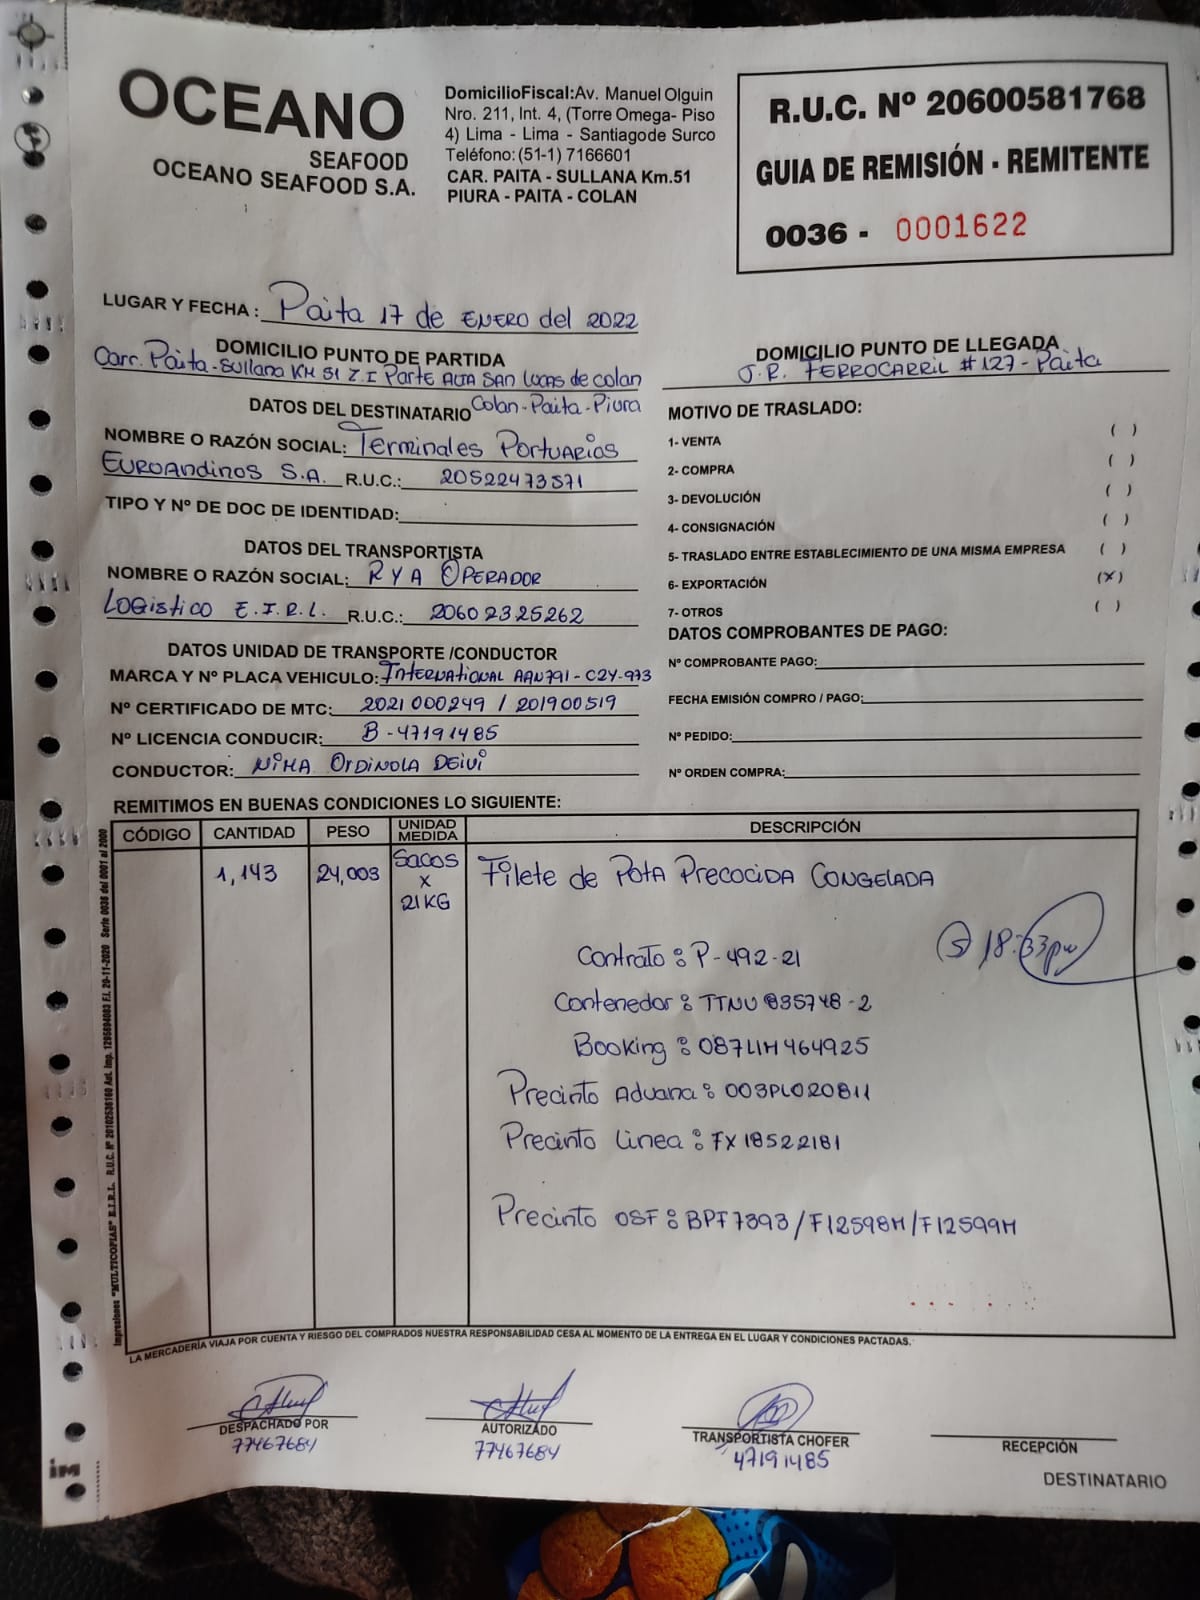 OCEANO
SEAFOOD
OCEANO SEAFOOD S.A.
DomicilioFiscal:Av. Manuel Olguin
Nro. 211, Int. 4, (Torre Omega- Piso
4) Lima - Lima - Santiagode Surco
Teléfono:(51-1) 7166601
CAR. PAITA - SULLANA Km.51
PIURA - PAITA - COLAN
R.U.C. Nº 20600581768
GUIA DE REMISIÓN - REMITENTE
0036 - 0001622
LUGAR Y FECHA : Paita 17 de ENERO del 2022
DOMICILIO PUNTO DE PARTIDA
Carr. Paita-Sullana KM 51 Z.I Parte ALTA SAN LUCAS de colan
Colan-Paita-Piura
DOMICILIO PUNTO DE LLEGADA
J.R. FERROCARRIL #127-Paita
DATOS DEL DESTINATARIO
NOMBRE O RAZÓN SOCIAL: Terminales Portuarios
EUROAndinos S.A. R.U.C.: 20522473571
TIPO Y Nº DE DOC DE IDENTIDAD:
DATOS DEL TRANSPORTISTA
NOMBRE O RAZÓN SOCIAL: R Y A OPERADOR
LOGistico E.I.R.L. R.U.C.: 20602325262
DATOS UNIDAD DE TRANSPORTE /CONDUCTOR
MARCA Y Nº PLACA VEHICULO: INTERNATIONAL AAN791-C2Y-973
Nº CERTIFICADO DE MTC: 2021000249 / 201900519
Nº LICENCIA CONDUCIR: B-47191485
CONDUCTOR: NIMA ORDINOLA DEIVI
MOTIVO DE TRASLADO:
1- VENTA ( )
2- COMPRA ( )
3- DEVOLUCIÓN ( )
4- CONSIGNACIÓN ( )
5- TRASLADO ENTRE ESTABLECIMIENTO DE UNA MISMA EMPRESA ( )
6- EXPORTACIÓN (X)
7- OTROS ( )
DATOS COMPROBANTES DE PAGO:
Nº COMPROBANTE PAGO:
FECHA EMISIÓN COMPRO / PAGO:
Nº PEDIDO:
Nº ORDEN COMPRA:
REMITIMOS EN BUENAS CONDICIONES LO SIGUIENTE:
CÓDIGO CANTIDAD PESO UNIDAD MEDIDA DESCRIPCIÓN
1,143 24,003 Sacos x 21KG Filete de POTA PRECOCIDA CONGELADA
18:33pm
Contrato: P-492-21
Contenedor: TTNU 835748-2
Booking: 087LIM464925
Precinto Aduana: 003PL020811
Precinto Linea: FX18522181
Precinto OSF: BPF7393/F12598M/F12599M
Impresiones "MULTICOPIAS" E.I.R.L. R.U.C. Nº 20102536160 Aut. Imp. 1285694083 F.I. 20-11-2020 Serie 0036 del 0001 al 2000
LA MERCADERÍA VIAJA POR CUENTA Y RIESGO DEL COMPRADOS NUESTRA RESPONSABILIDAD CESA AL MOMENTO DE LA ENTREGA EN EL LUGAR Y CONDICIONES PACTADAS.
DESPACHADO POR
77467684
AUTORIZADO
77467684
TRANSPORTISTA CHOFER
47191485
RECEPCIÓN
DESTINATARIO
im